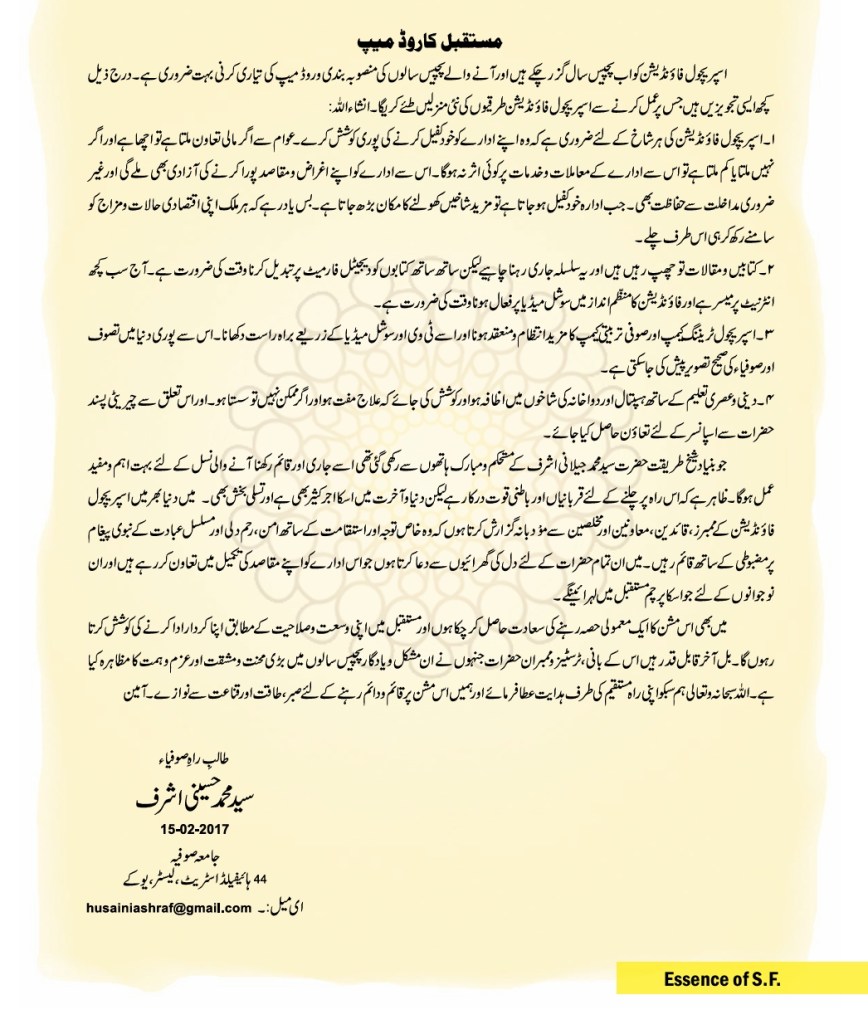 مستقبل کا روڈ میپ
اسپریچول فاؤنڈیشن کو اب پچیس سال گزر چکے ہیں اور آنے والے پچیس سالوں کی منصوبہ بندی و روڈ میپ کی تیاری کرنی بہت ضروری ہے۔ درج ذیل
کچھ ایسی تجویزیں ہیں جس پر عمل کرنے سے اسپریچول فاؤنڈیشن طرقیوں کی نئی منزلیں طئے کریگا۔ انشاء اللہ:
۱۔ اسپریچول فاؤنڈیشن کی ہر شاخ کے لئے ضروری ہے کہ وہ اپنے ادارے کو خود کفیل کرنے کی پوری کوشش کرے۔ عوام سے اگر مالی تعاون ملتا ہے تو اچھا ہے اور اگر
نہیں ملتا یا کم ملتا ہے تو اس سے ادارے کے معاملات و خدمات پر کوئی اثر نہ ہوگا۔ اس سے ادارے کو اپنے اغراض و مقاصد پورا کرنے کی آزادی بھی ملے گی اور غیر
ضروری مداخلت سے حفاظت بھی۔ جب ادارہ خود کفیل ہو جاتا ہے تو مزید شاخیں کھولنے کا مکان بڑھ جاتا ہے۔ بس یاد رہے کہ ہر ملک اپنی اقتصادی حالات و مزاج کو
سامنے رکھ کر ہی اس طرف چلے۔
۲۔ کتابیں و مقالات تو چھپ رہیں ہیں اور یہ سلسلہ جاری رہنا چاہیے لیکن ساتھ ساتھ کتابوں کو دیجیٹل فارمیٹ پر تبدیل کرنا وقت کی ضرورت ہے۔ آج سب کچھ
انٹرنیٹ پر میسر ہے اور فاؤنڈیشن کا منظم انداز میں سوشل میڈیا پر فعال ہونا وقت کی ضرورت ہے۔
۳۔ اسپریچول ٹریننگ کیمپ اور صوفی تربیتی کیمپ کا مزید انتظام و منعقد ہونا اور اسے ٹی وی اور سوشل میڈیا کے زریعے براہ راست دکھانا۔ اس سے پوری دنیا میں تصوف
اور صوفیاء کی صحیح تصویر پیش کی جا سکتی ہے۔
۴۔ دینی و عصری تعلیم کے ساتھ ہسپتال اور دواخانہ کی شاخوں میں اظافہ ہو اور کوشش کی جائے کہ علاج مفت ہو اور اگر ممکن نہیں تو سستا ہو۔ اور اس تعلق سے چیریٹی پسند
حضرات سے اسپانسر کے لئے تعاؤن حاصل کیا جائے۔
جو بنیاد شیخ طریقت حضرت سید محمد جیلانی اشرف کے مستحکم و مبارک ہاتھوں سے رکھی گئی تھی اسے جاری اور قائم رکھنا آنے والی نسل کے لئے بہت اہم و مفید
عمل ہوگا۔ ظاہر ہے کہ اس راہ پر چلنے کے لئے قربانیاں اور باطنی قوت درکار ہے لیکن دنیا و آخرت میں اسکا اجر کثیر بھی ہے اور تسلی بخش بھی۔ میں دنیا بھر میں اسپریچول
فاؤنڈیشن کے ممبرز، قائدین، معاونین اور مخلصین سے مؤدبانہ گزارش کرتا ہوں کہ وہ خاص توجہ اور استقامت کے ساتھ امن، رحم دلی اور مسلسل عبادت کے نبوی پیغام
پر مضبوطی کے ساتھ قائم رہیں۔ میں ان تمام حضرات کے لئے دل کی گھرائیوں سے دعا کرتا ہوں جو اس ادارے کو اپنے مقاصد کی تکمیل میں تعاون کر رہے ہیں اور ان
نوجوانوں کے لئے جو اسکا پرچم مستقبل میں لہرائینگے۔
میں بھی اس مشن کا ایک معمولی حصہ رہنے کی سعادت حاصل کر چکا ہوں اور مستقبل میں اپنی وسعت و صلاحیت کے مطابق اپنا کردار ادا کرنے کی کوشش کرتا
رہوں گا۔ بل آخر قابل قدر ہیں اس کے بانی، ٹرسٹیز و ممبران حضرات جنہوں نے ان مشکل و یادگار پچیس سالوں میں بڑی محنت و مشقت اور عزم و ہمت کا مظاہرہ کیا
ہے۔ اللہ سبحانہ و تعالی ہم سبکو اپنی راہ مستقیم کی طرف ہدایت عطا فرمائے اور ہمیں اس مشن پر قائم و دائم رہنے کے لئے صبر، طاقت اور قناعت سے نوازے۔ آمین
طالب راہِ صوفیاء
سید محمد حسینی اشرف
15-02-2017
جامعہ صوفیہ
44 ہائیفیلڈ اسٹریٹ، لیسٹر، یو کے
ای میل:۔ husainiashraf@gmail.com
Essence of S.F.